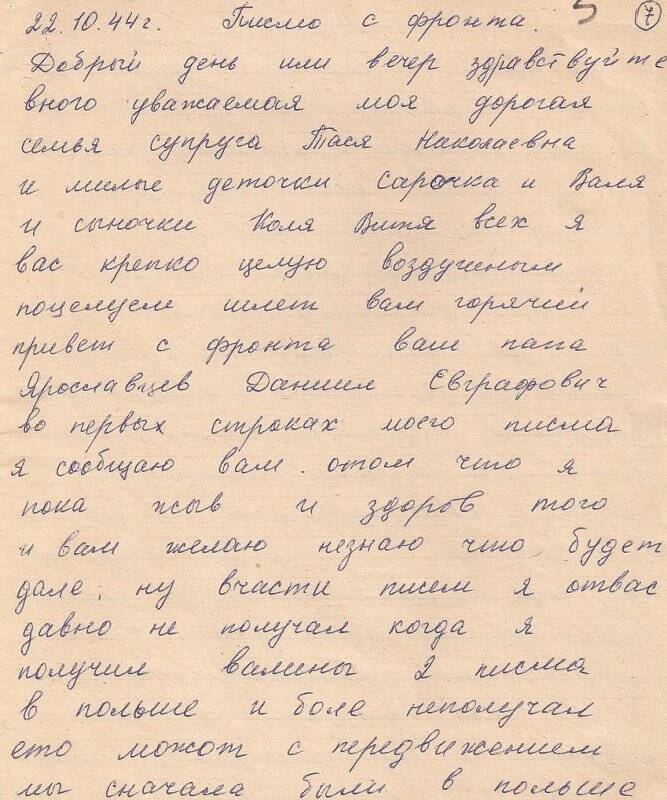 22.10.44г. Писмо с фронта. 5 7
Добрый день или вечер здравствуйте
вного уважаемая моя дорогая
семья супруга Тася Николаевна
и милые деточки Сарочка и Валя
и сыночки Коля Витя всех я
вас крепко целую воздушным
поцелуем шлет вам горячий
привет с фронта ваш папа
Ярославцев Даниил Евграфович
во первых строках моего писма
я сообщаю вам отом что я
пока жыв и здоров того
и вам желаю незнаю что будет
дале, ну вчасти писем я отвас
давно не получал когда я
получил валины 2 писма
в польше и боле неполучал
ето можот с передвижением
мы сначала были в польше